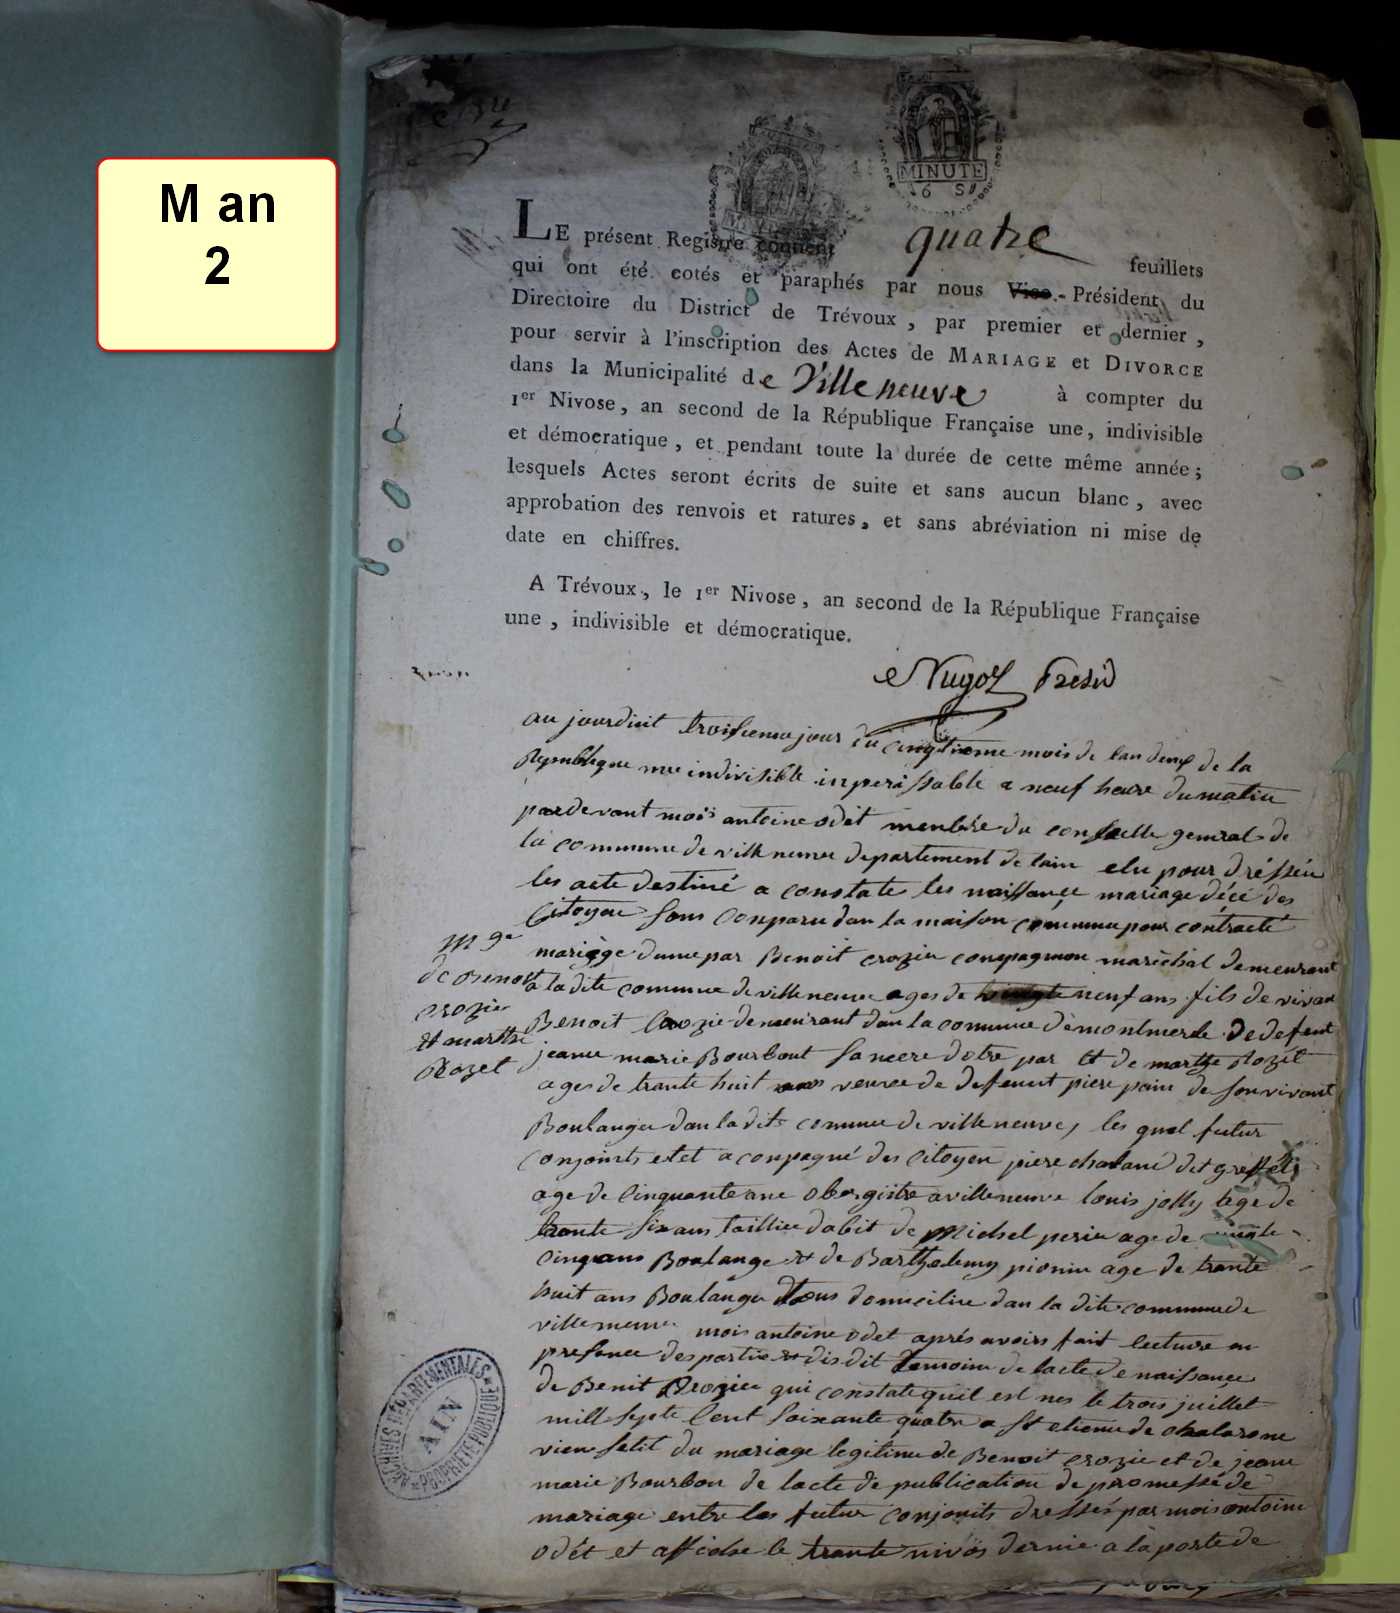 M an
2
MINUTE
6 S
LE présent Registre contient quatre feuillets
qui ont été cotés et paraphés par nous Vice-Président du
Directoire du District de Trévoux, par premier et dernier,
pour servir à l'inscription des Actes de MARIAGE et DIVORCE
dans la Municipalité de Villeneuve à compter du
1er Nivose, an second de la République Française une, indivisible
et démocratique, et pendant toute la durée de cette même année;
lesquels Actes seront écrits de suite et sans aucun blanc, avec
approbation des renvois et ratures, et sans abréviation ni mise de
date en chiffres.
A Trévoux, le 1er Nivose, an second de la République Française
une, indivisible et démocratique.
Presid
au jourduit troisieme jour du cinqtieme mois de lan deux de la
Republique une indivisible inperissable a neuf heure du matin
pardevant mois antoine odet menbre du conseille general de
la commune de villeneuve departement de lain elu pour dréssér
les acte destiné a constate les naissance mariage décé des
Citoyen sons conparu dan la maison commune pour contracté
mariège dune par Benoit crozier conpagnon maréchal demeurant
a la dite commune de villeneuve ages de neuf ans fils de vivan
Benoit Crozie demeurant dan la commune de montmerle De defent
jeanne marie Bourbout dotre par Et de marthe Rozet
ages de trante huit ans veuve de defeunt piere de son vivant
Boulanger dan la dite commune de villeneuve, les quel futur
conjoints etet aconpagné des Citoyen piere dit
age de Cinquante ane obergiste a villeneuve louis jolly age de
trante six ans taillieu dabit de Michel perier age de
Cinq ans Boulange et de Barthelemy age de trante
huit ans Boulanger tous domicilie dan la dite commune de
villeneuve mois antoine odet aprés avoirs fait lecture en
presence des partie et dis dit temoins de lacte de naissance
de Benit Crozier qui constate quil est nes le trois juillet
mill septe Cent soixante quatre a st etienne de chalarone
du mariage legitime de Benoit crozie et de jeane
marie Bourbon de lacte de publication de promesse de
mariage entre les futur conjoints dressés par mois antoine
odét et affiche le trante nivos dernie a la porte de
M ge
de Benoit
crozier
et marthe
Rozet
ARCHIVES DÉPARTEMENTALES
AIN
PROPRIÉTÉ PUBLIQUE